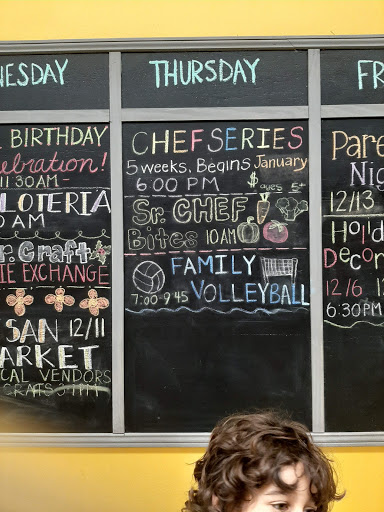 NESDAY
BIRTHDAY
ebration!
11:30AM
LOTERIA
AM
r. Craft
IE EXCHANGE
SAN 12/11
ARKET
CAL VENDORS
CRAFTS
THURSDAY
CHEF SERIES
5 weeks. Begins January
6:00 PM $ ages 5+
Sr. CHEF
Bites 10AM
FAMILY
VOLLEYBALL
7:00-9:45
FR
Pare
Nig
12/13
Holid
Decor
12/6
6:30PM